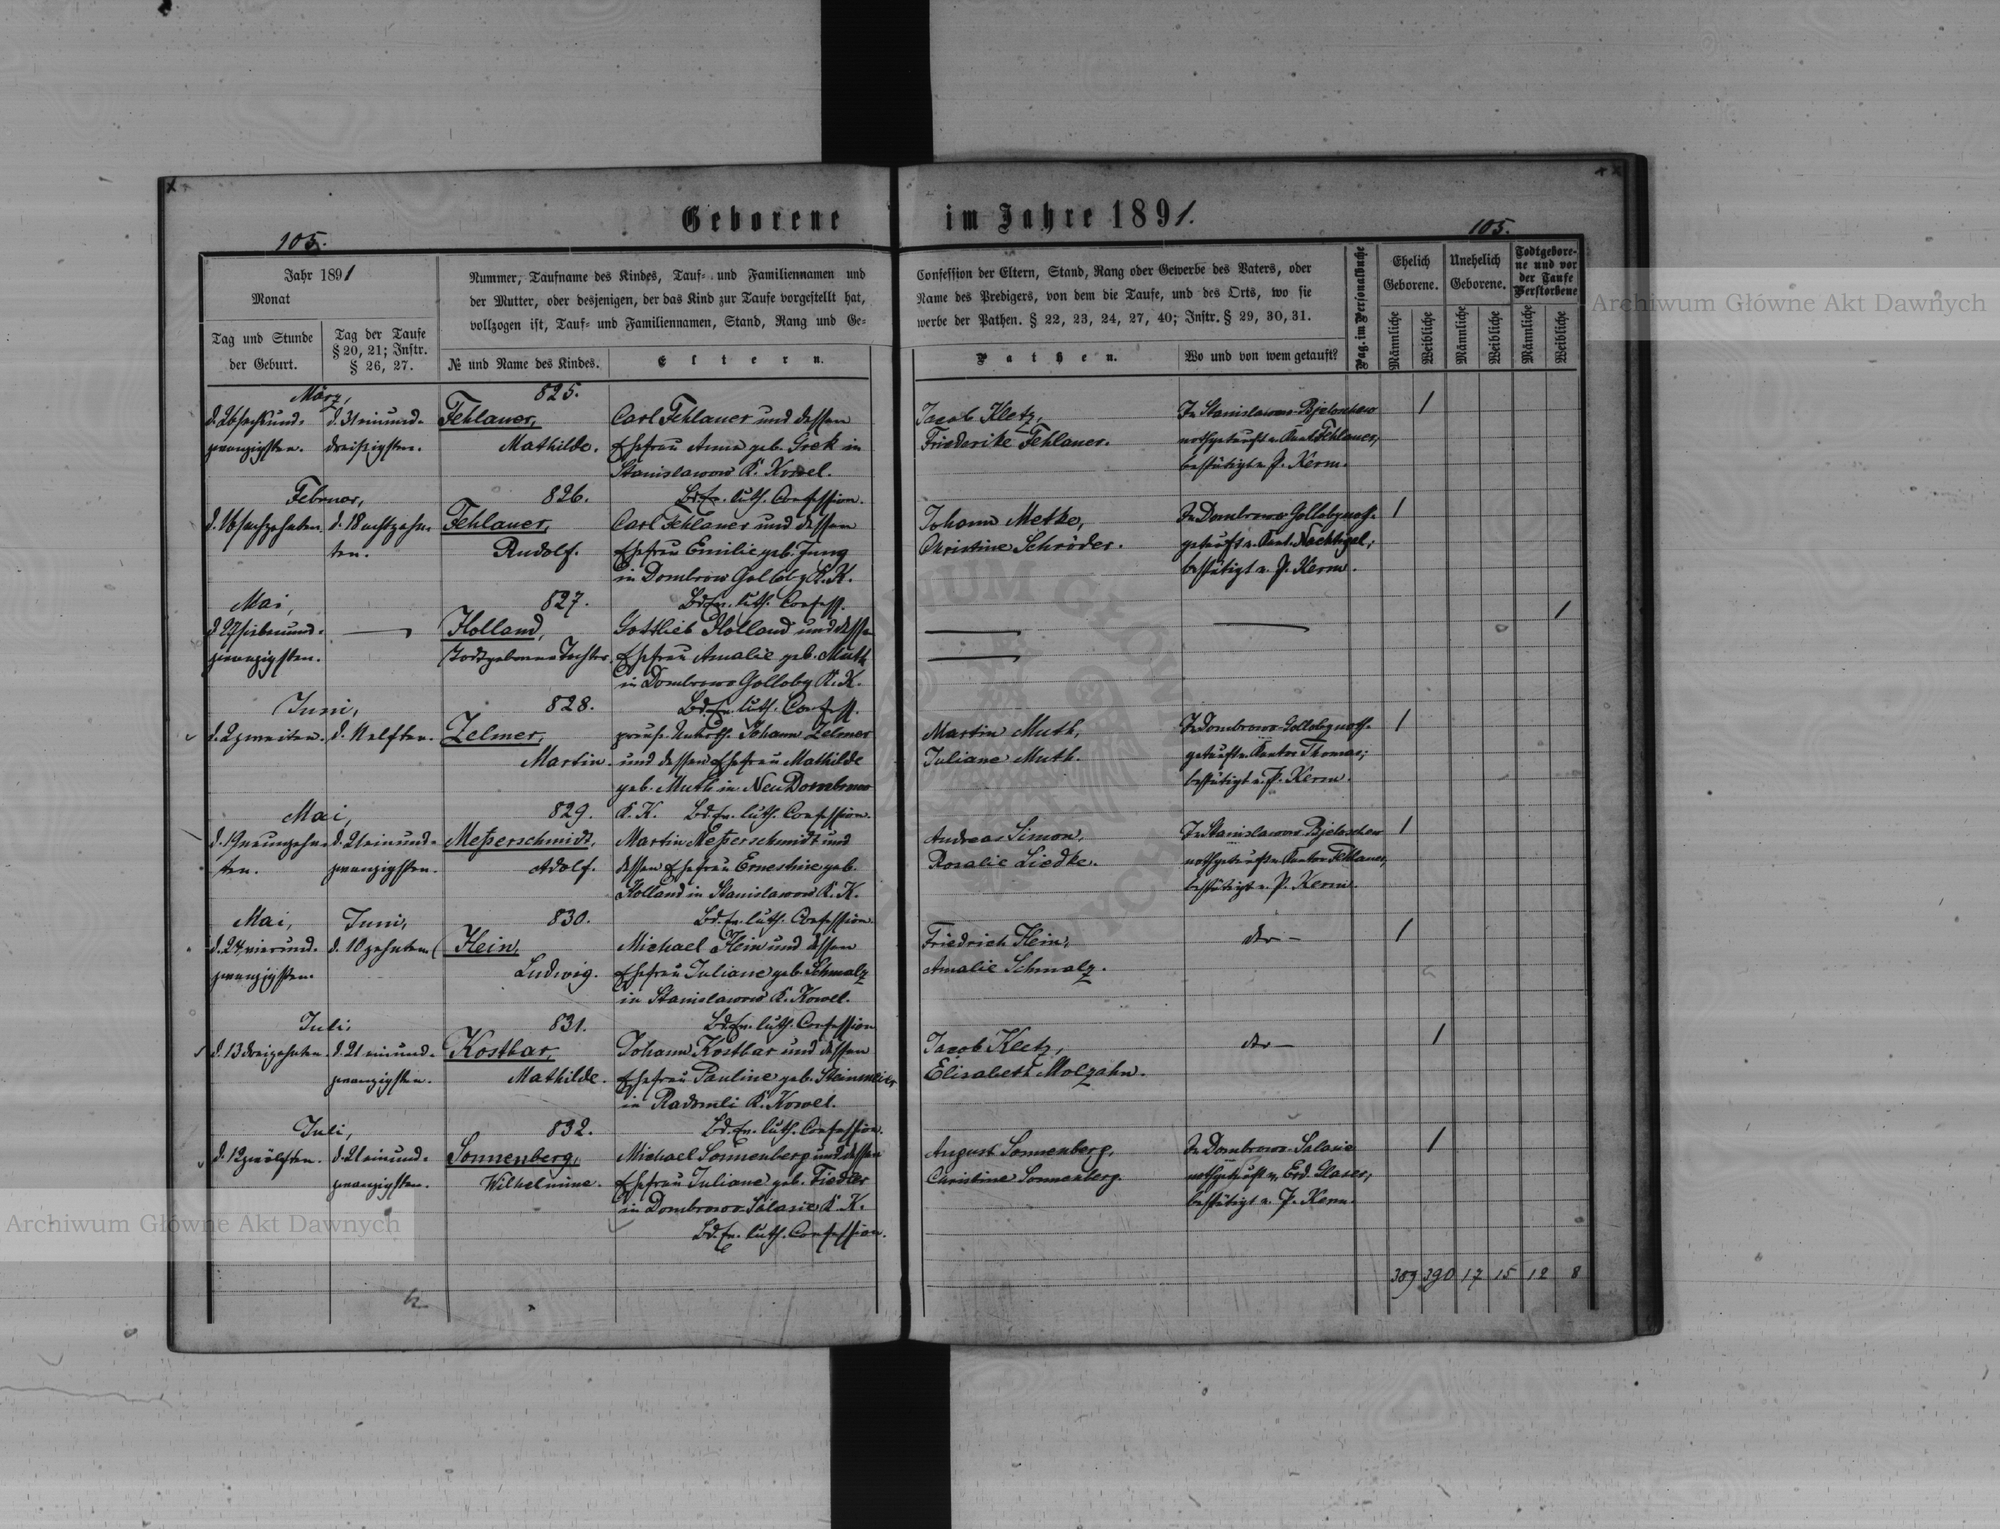 Geborene im Jahre 1891.
105.
105.
Jahr 1891
Monat
Tag und Stunde
der Geburt.
Tag der Taufe
§ 20, 21; Instr.
§ 26, 27.
Nummer, Taufname des Kindes, Tauf- und Familiennamen und
der Mutter, oder desjenigen, der das Kind zur Taufe vorgestellt hat,
vollzogen ist, Tauf- und Familiennamen, Stand, Rang und Ge-
№ und Name des Kindes.
Eltern.
Confession der Eltern, Stand, Rang oder Gewerbe des Vaters, oder
Name des Predigers, von dem die Taufe, und des Orts, wo sie
werbe der Pathen. § 22, 23, 24, 27, 40; Instr. § 29, 30, 31.
Pathen.
Wo und von wem getauft?
Pag. im Personalbuche
Ehelich
Geborene.
Unehelich
Geborene.
Todtgebore-
ne und vor
der Taufe
Verstorbene
Männliche
Weibliche
Männliche
Weibliche
Männliche
Weibliche
März,
825.
d. 26 sechsund-
zwanzigsten.
d. 31 einund-
dreißigsten.
Fehlauer,
Mathilde.
Carl Fehlauer und dessen
Ehefrau Anna geb. Grek in
Stanislawow K. Kowel.
Bd. Ev. luth. Confession.
Jacob Kletz,
Friederike Fehlauer.
In Stanislawow-Bjeloschew
nothgetauft v. Kant. Fehlauer,
bestätigt v. P. Kerm.
1
Februar,
826.
d. 16 sechzehnten.
d. 18 achtzehn-
ten.
Fehlauer,
Rudolf.
Carl Fehlauer und dessen
Ehefrau Emilie geb. Jung
in Dombrowo Golloby K. K.
Bd. Ev. luth. Confess.
Johann Metke,
Christine Schröder.
In Dombrowo Golloby noth-
getauft v. Kant. Nachtigal,
bestätigt v. P. Kerm.
1
Mai,
827.
d. 27 siebenund-
zwanzigsten.
Holland,
Todtgeborene Tochter.
Gottlieb Holland und dessen
Ehefrau Amalie geb. Muth
in Dombrowo Golloby K. K.
Bd. Ev. luth. Confess.
1
Juni,
828.
d. 2 zweiten.
d. 11 elften.
Zelmer,
Martin.
preuß. Unterth. Johann Zelmer
und dessen Ehefrau Mathilde
geb. Muth in Neu Dombrowo
K. K. Bd. Ev. luth. Confession.
Martin Muth,
Juliane Muth.
In Dombrowo-Golloby noth-
getauft v. Kantor Thomas;
bestätigt v. P. Kerm.
1
Mai,
829.
d. 19 neunzehn-
ten.
d. 21 einund-
zwanzigsten.
Meßerschmidt,
Adolf.
Martin Meßerschmidt und
dessen Ehefrau Ernestine geb.
Holland in Stanislawow K. K.
Bd. Ev. luth. Confession.
Andreas Simon,
Rosalie Liedke.
In Stanislawow-Bjeloschew
nothgetauft v. Kantor Fehlauer,
bestätigt v. P. Kerm.
1
Mai,
Juni,
830.
d. 24 vierund-
zwanzigsten.
d. 10 zehnten.
Hein,
Ludwig.
Michael Hein und dessen
Ehefrau Juliane geb. Schmalz
in Stanislawow K. Kowel.
Bd. Ev. luth. Confession
Friedrich Hein,
Amalie Schmalz.
dto —
1
Juli,
831.
d. 13 dreizehnten.
d. 21 einund-
zwanzigsten.
Kostbar,
Mathilde.
Johann Kostbar und dessen
Ehefrau Pauline geb. Steinmeier
in Radomli K. Kowel.
Bd. Ev. luth. Confession.
Jacob Kletz,
Elisabeth Molzahn.
dto —
1
Juli,
832.
d. 12 zwölften.
d. 21 einund-
zwanzigsten.
Sonnenberg,
Wilhelmine.
Michael Sonnenberg und dessen
Ehefrau Juliane geb. Fiedler
in Dombrowo-Salasie K. K.
Bd. Ev. luth. Confession.
August Sonnenberg,
Christine Sonnenberg.
In Dombrowo-Salasie
nothgetauft v. Erd. Glaser,
bestätigt v. P. Kerm.
1
389 390 17 15 12 8
Archiwum Główne Akt Dawnych
Archiwum Główne Akt Dawnych